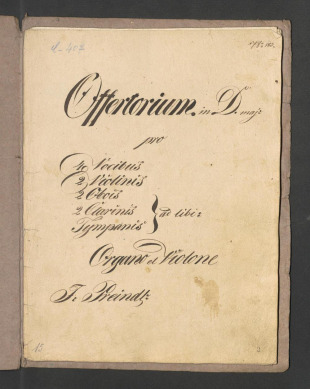 Offertorium in D. maj:
pro
4 Vocibus
2 Violinis
2 Obois
2 Clarinis
Tympanis } ad libi:
Organo et Violone
J: Preindl: